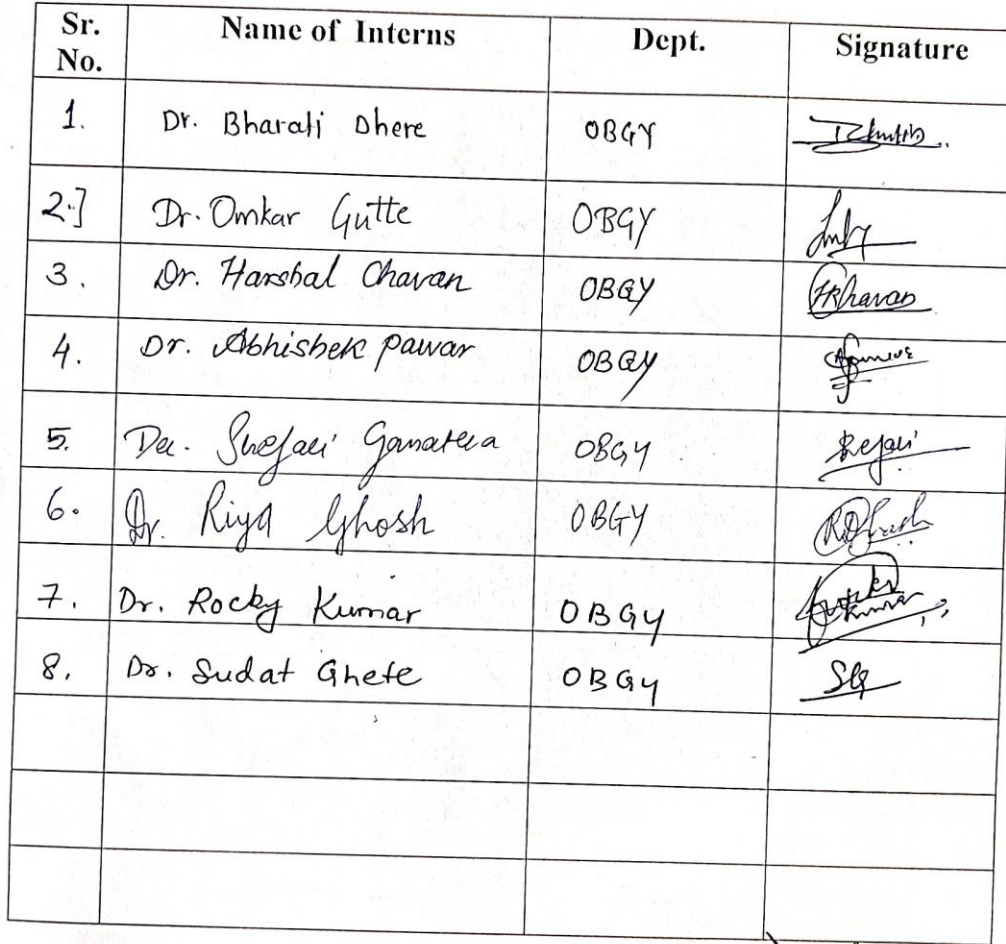 Sr. No. Name of Interns Dept. Signature
1. Dr. Bharati Dhere OBGY
2.] Dr. Omkar Gutte OBGY
3. Dr. Harshal Chavan OBGY HRhavan
4. Dr. Abhishek Pawar OBGY
5. OBGY
6. Dr. Riya Ghosh OBGY
7. Dr. Rocky Kumar OBGY Kumar
8. Dr. Sudat Ghete OBGY SG